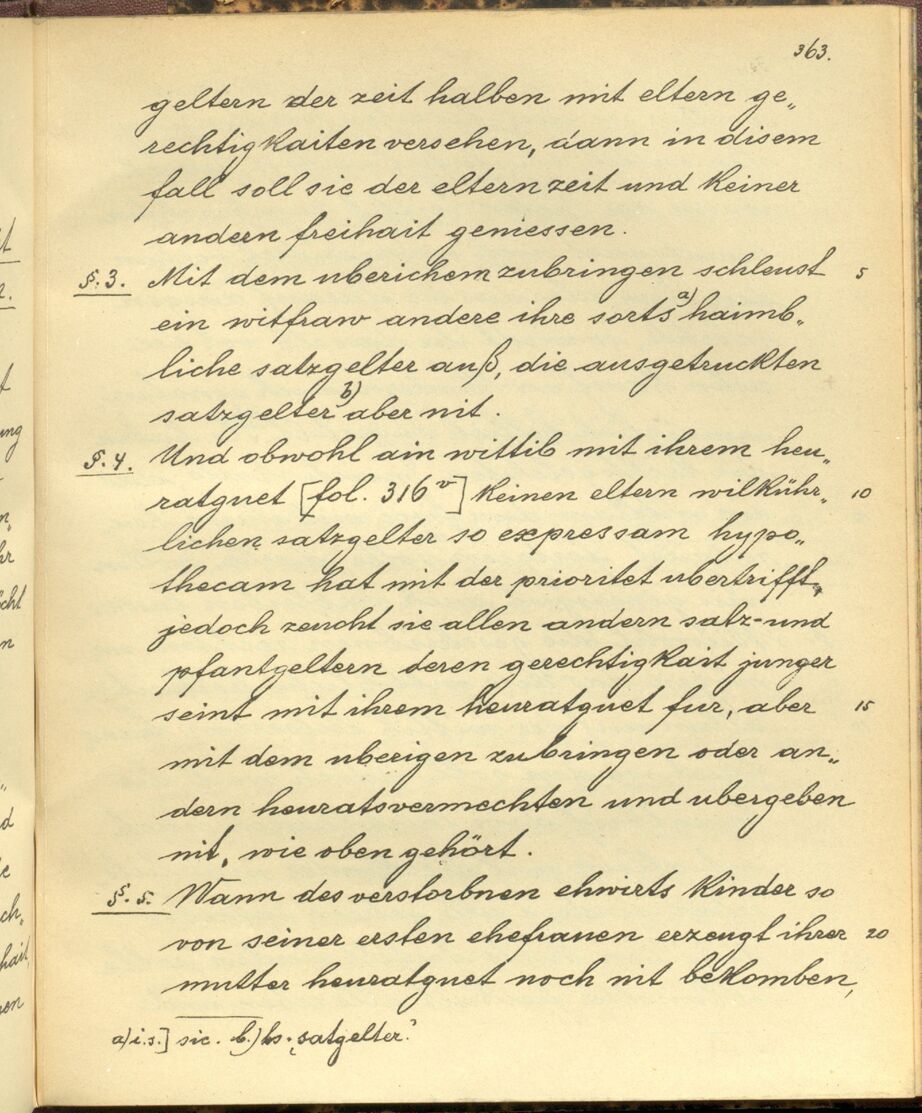 363.
geltern der zeit halben mit eltern ge„
rechtigkaiten versehen, dann in disem
fall soll sie der eltern zeit und keiner
andern freihait geniessen.
§. 3. Mit dem uberichem zubringen schleust 5
ein witfraw andere ihre sorts a) haimb„
liche satzgelter auß, die ausgetruckten
satzgelter b) aber nit.
§. 4. Und obwohl ain wittib mit ihrem heu„
ratguet [fol. 316 v] keinen eltern wilkühr„ 10
lichen satzgelter so expressam hypo„
thecam hat mit der prioritet ubertrifft,
jedoch zeucht sie allen andern satz- und
pfantgeltern deren gerechtigkait junger
seint mit ihrem heuratguet fur, aber 15
mit dem uberigen zubringen oder an„
dern heuratsvermechten und ubergeben
nit, wie oben gehört.
§. 5. Wann des verstorbnen ehwirts kinder so
von seiner ersten ehefrauen erzeugt ihrer 20
mutter heuratguet noch nit bekomben,
a) i.s.] sic. b.) hs. ‚satgelter‘